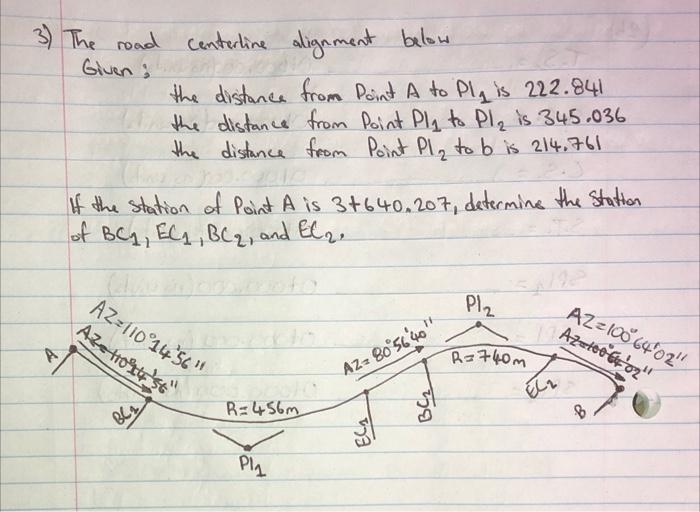 3) The road centerline alignment below
Given :
the distance from Point A to PI1 is 222.841
the distance from Point PI1 to PI2 is 345.036
the distance from Point PI2 to b is 214.761
If the station of Point A is 3+640.207, determine the Station
of BC1, EC1, BC2, and EC2.
PI2
AZ=110°14'56"
AZ=110°14'56"
AZ=80°56'40"
AZ=100°64'02"
AZ=100°64'02"
A
R=740m
BC1
R=456m
EC1
BC2
EC2
B
PI1